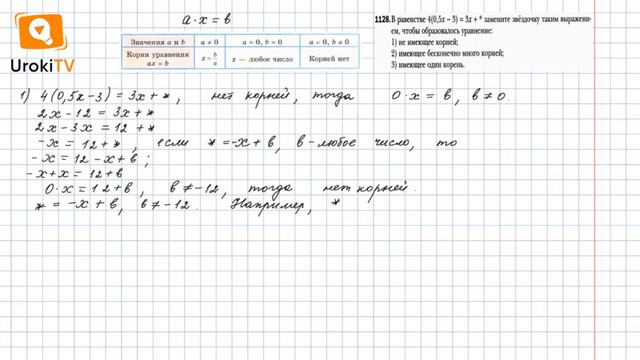 UrokiTV
a·x=в
Значения a и b a ≠ 0 a = 0, b = 0 a = 0, b ≠ 0
Корни уравнения ax = b x = b/a x — любое число Корней нет
1128. В равенстве 4(0,5x – 3) = 3x + * замените звёздочку таким выражени-
ем, чтобы образовалось уравнение:
1) не имеющее корней;
2) имеющее бесконечно много корней;
3) имеющее один корень.
1) 4(0,5x-3) = 3x+*, нет корней, тогда 0·x = в, в≠0.
2x-12 = 3x+*
2x-3x = 12+*
-x = 12+*, если *=-x+в, в-любое число, то
-x=12-x+в;
-x+x=12+в
0·x=12+в, в≠-12, тогда нет корней.
*=-x+в, в≠-12. Например, *